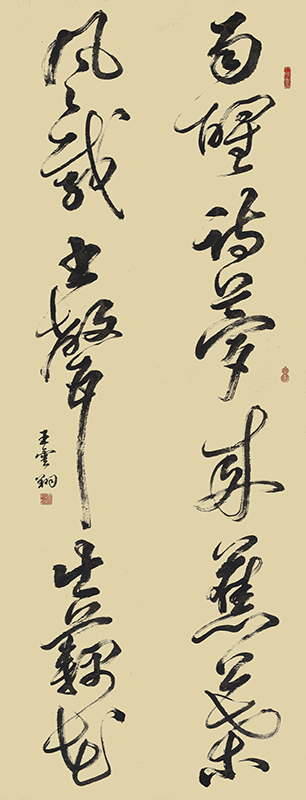 雨醒詩夢來蕉葉
風載書聲出藕花
王雲翔